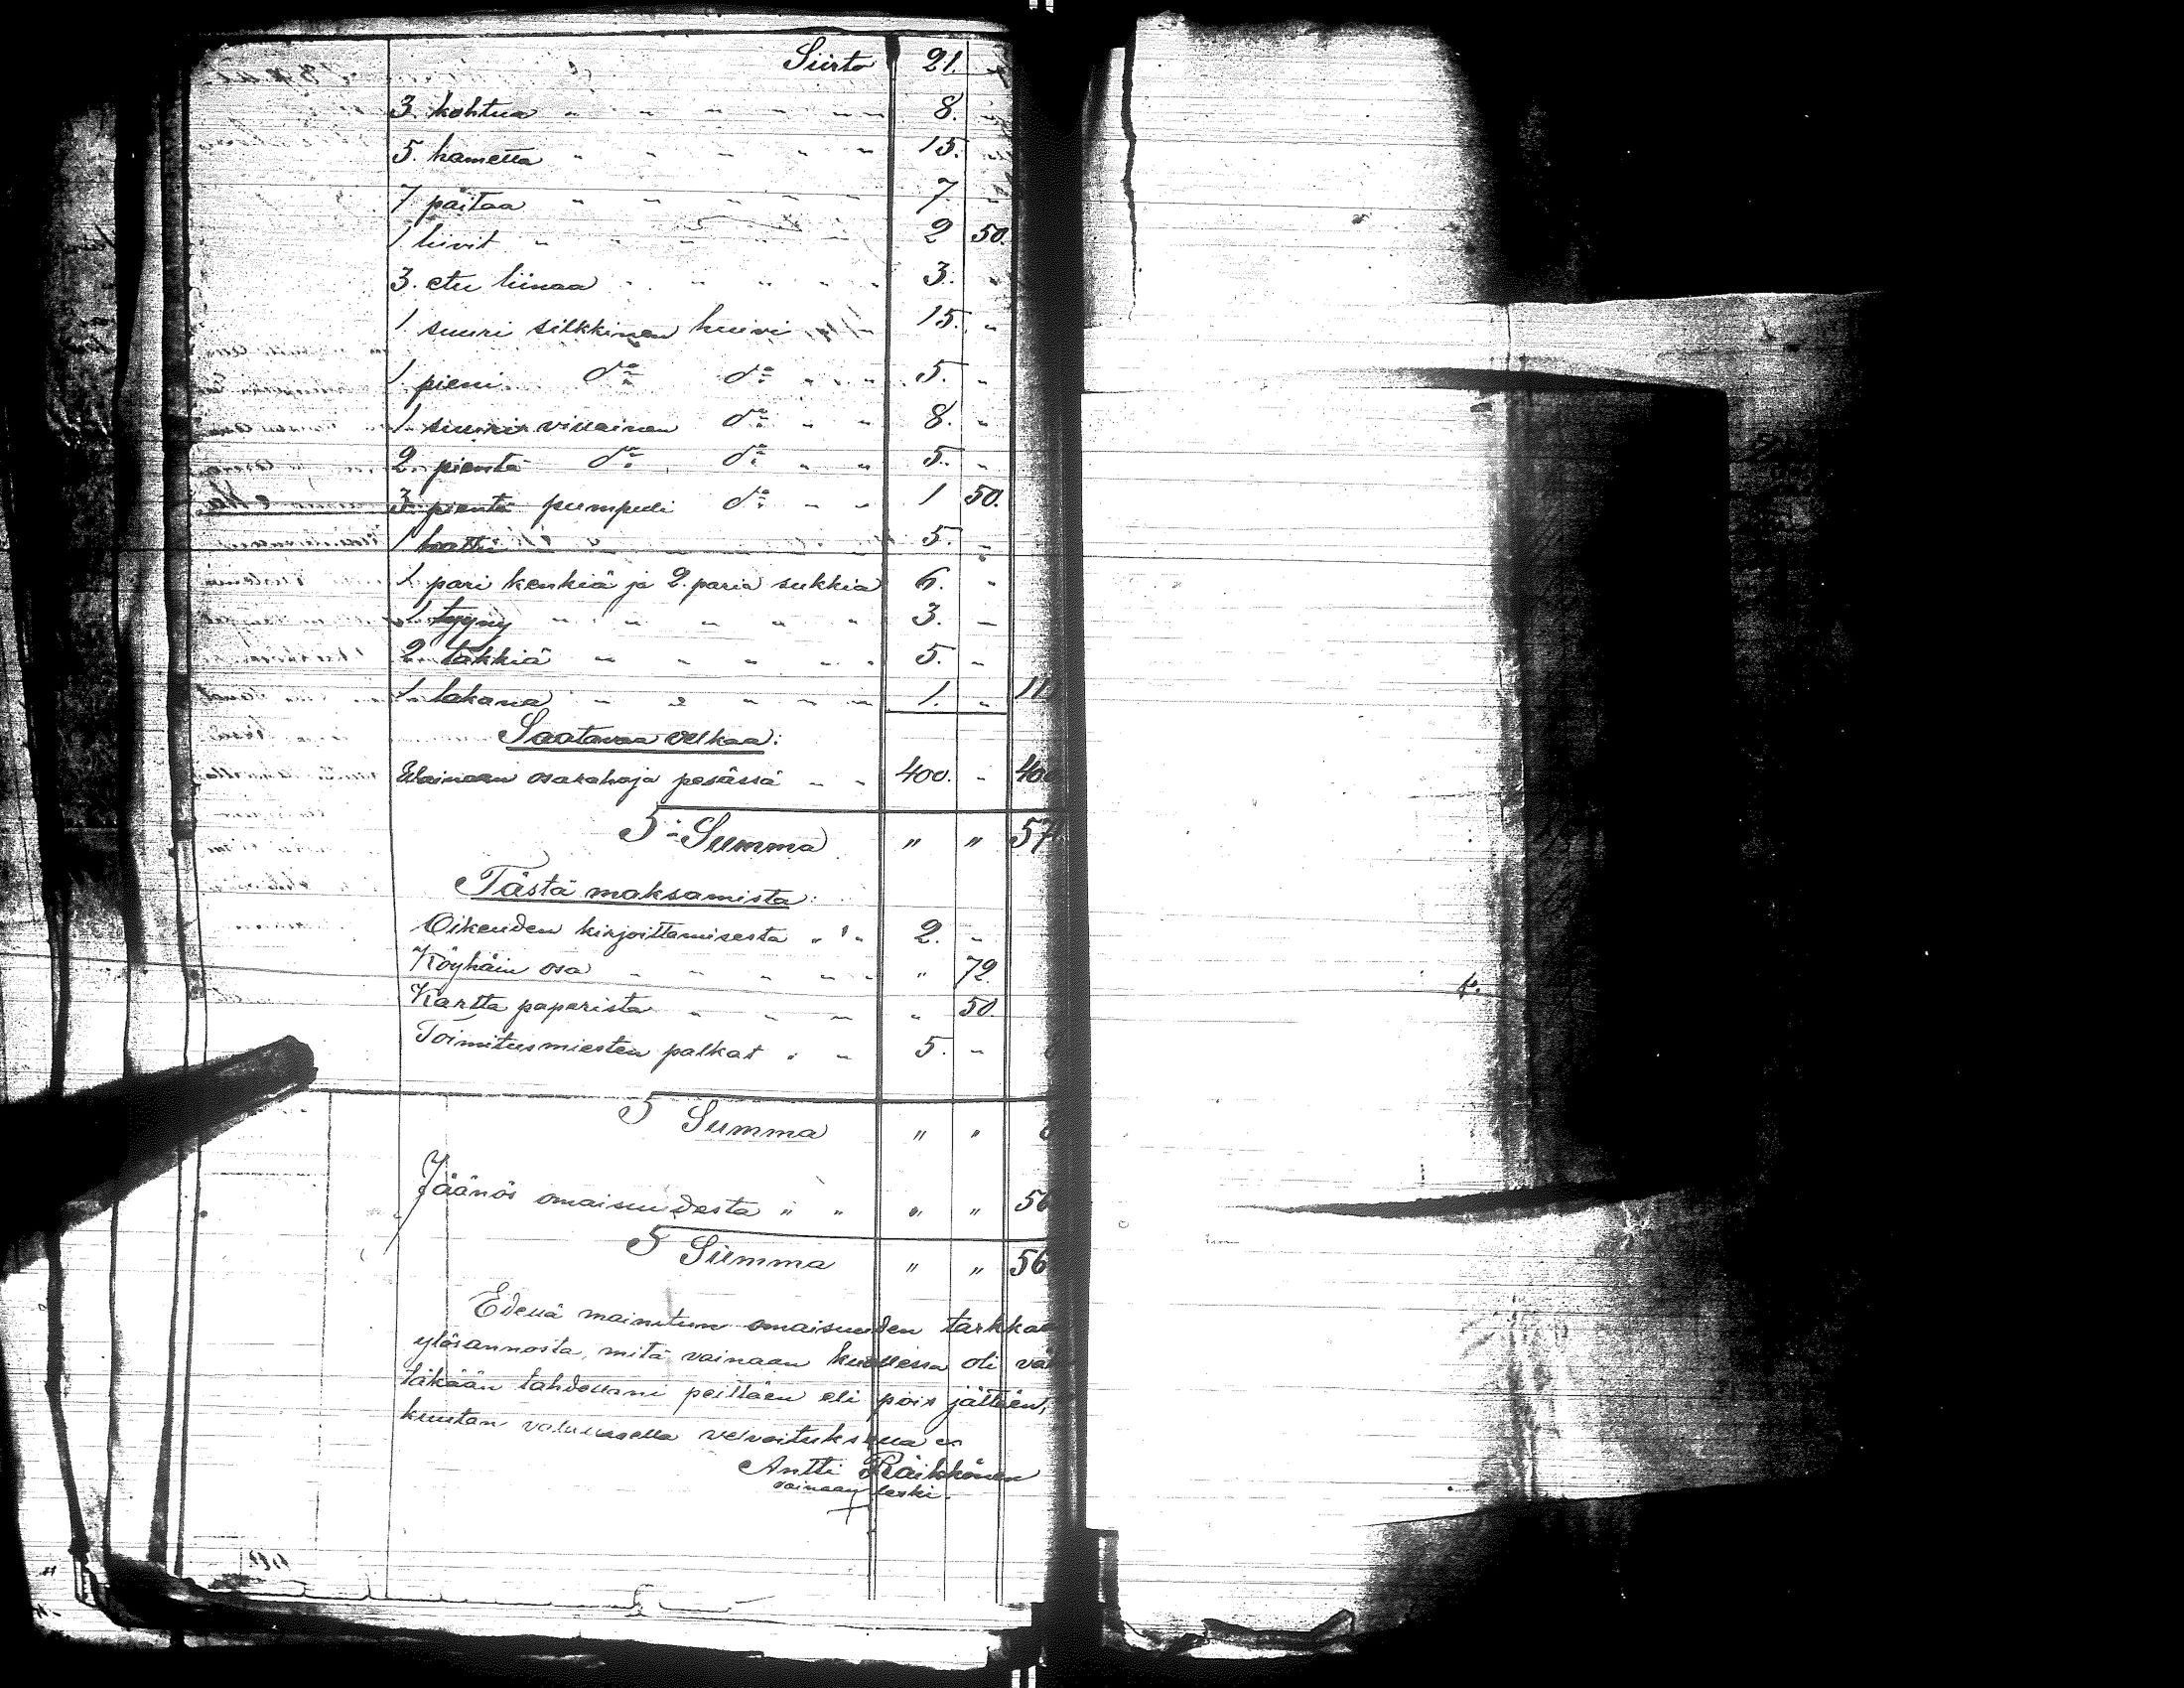 Siirto 21. "
3. kohtua " " " " " " 8. "
5. hametta " " " " " 15. "
7 paitaa " " " " " 7. "
1 liivit " " " " " 2 50.
3. etu liinaa " " " " " 3. "
1. suuri silkkinen huivi " " 15. "
1. pieni do do " " " 5. "
1 suuri villainen do " " 8. "
2. pientä do do " " 5. "
3. pientä pumpuli do " " 1 50.
1 hattu " " " " 5. "
1. pari kenkiä ja 2. paria sukkia 6. "
1 tyyny " " " " " 3. "
2 täkkiä " " " " " 5. "
1. lakana " " " " " 1. " 11
Saatavaa velkaa:
Wainaan osarahoja pesässä " " 400. " 400
S:a Summa " " 57
Tästä maksamista:
Oikeuden kirjoittamisesta " " 2. "
Köyhäin osa " " " " " " 72.
Kartta paperista " " " " 50.
Toimitusmiesten palkat " " 5. "
S Summa " "
Jäänös omaisuudesta " " " " 56
S Summa " " 56
Edellä mainitun omaisuuden tarkka
ylösannosta, mitä vainaan kuollessa oli
täkään tahdollani peittäen eli pois jättäen,
kuutan velvoituksella
Antti Räikkönen
vainaan leski.